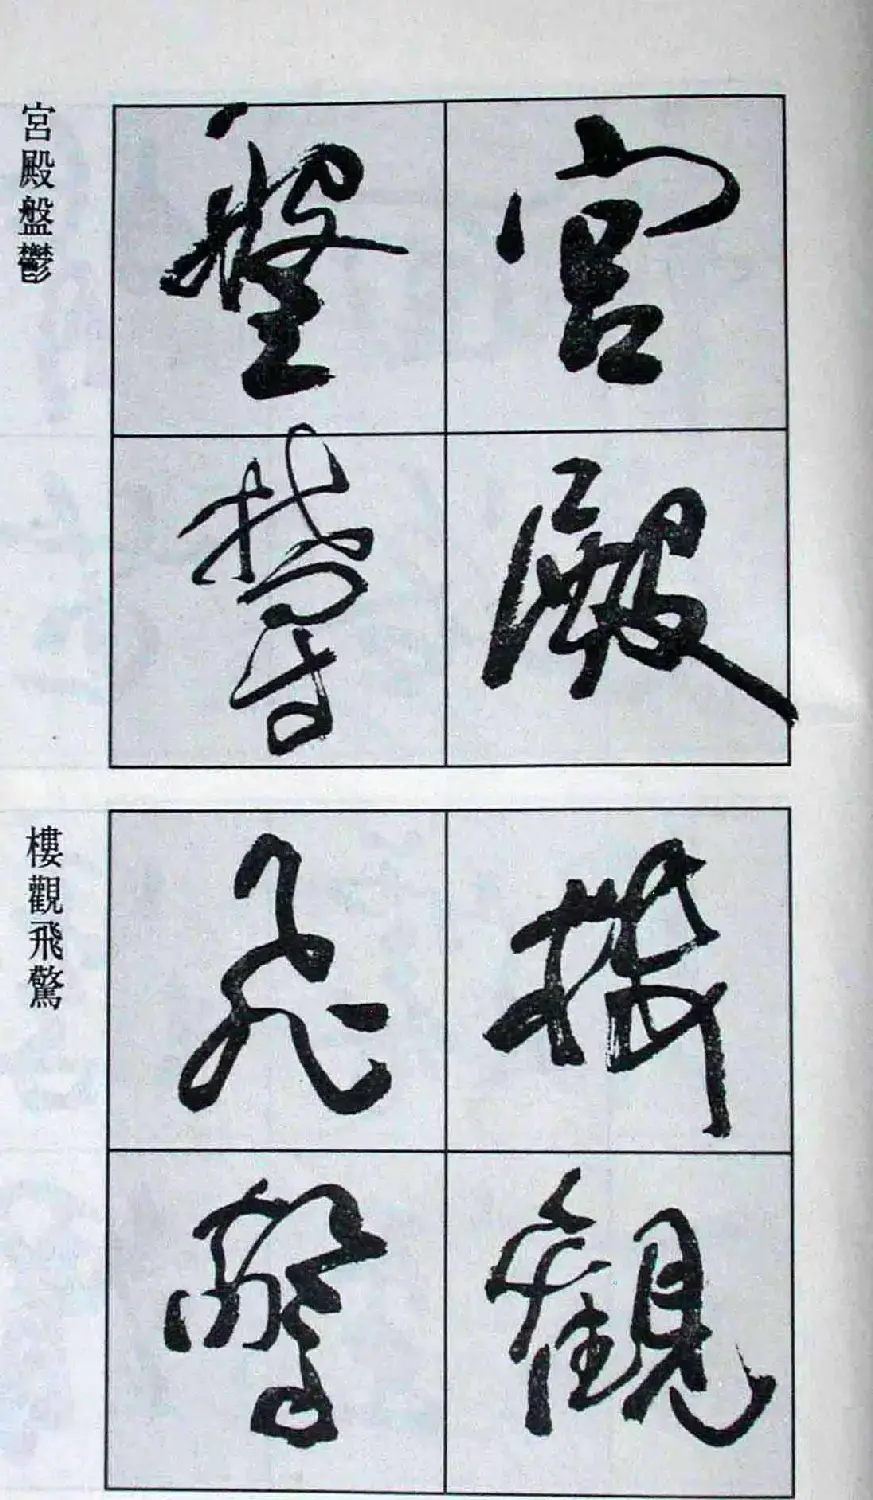 宮殿
盤鬱
宮殿盤鬱
樓觀
飛驚
樓觀飛驚